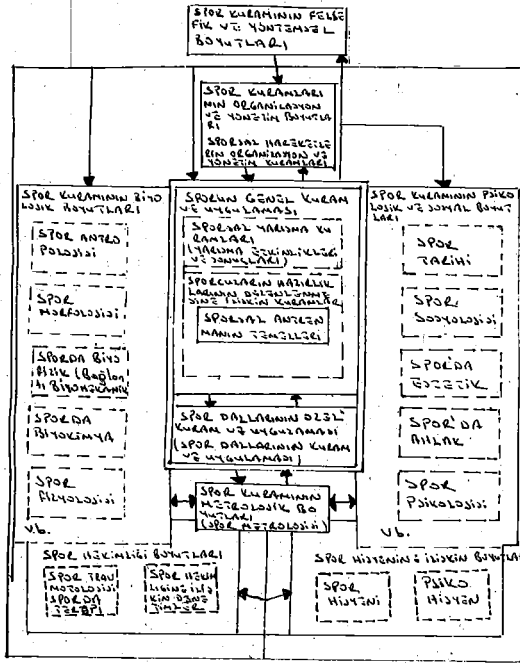 SPOR KURAMININ FELSE
FİK VE YÖNTEMSEL
BOYUTLARI
SPOR KURAMLARI
NIN ORGANİZASYON
VE YÖNETİM BOYUTLA
RI
SPORSAL HAREKETLE
RİN ORGANİZASYON VE
YÖNETİM KURAMLARI
SPOR KURAMININ BİYO
LOJİK BOYUTLARI
SPOR ANTRO
POLOJİSİ
SPOR
MORFOLOJİSİ
SPORDA BİYO
FİZİK (Bağlan
tı BİYOMEKANİK
SPORDA
BİYOKİMYA
SPOR
FİZYOLOJİSİ
V.b.
SPORUN GENEL KURAM
VE UYGULAMASI
SPORSAL YARIŞMA KU
RAMLARI
(YARIŞMA ETKİNLİKLERİ
VE SONUÇLARI)
SPORCULARIN HAZIRLIK
LARININ DÜZENLENME
SİNE İLİŞKİN KURAMLAR
SPORSAL ANTREN
MANIN TEMELLERİ
SPOR DALLARININ ÖZEL
KURAM VE UYGULAMASI
(SPOR DALLARININ KURAM
VE UYGULAMASI)
SPOR KURAMININ
METROLOJİK BO
YUTLARI
(SPOR METROLOJİSİ)
SPOR KURAMININ PSİKO
LOJİK VE SOSYAL BOYUT
LARI
SPOR
TARİHİ
SPOR
SOSYOLOJİSİ
SPOR'DA
ESTETİK
SPOR'DA
AHLAK
SPOR
PSİKOLOJİSİ
V.b.
SPOR HEKİMLİĞİ BOYUTLARI
SPOR TRAV
MOTOLOJİSİ
SPORDA
TERAPİ
SPOR HEKİM
LİĞİNE İLİŞ
KİN
SPOR HİJYENİNE İLİŞKİN BOYUTLAR
SPOR
HİJYENİ
PSİKO
HİJYEN